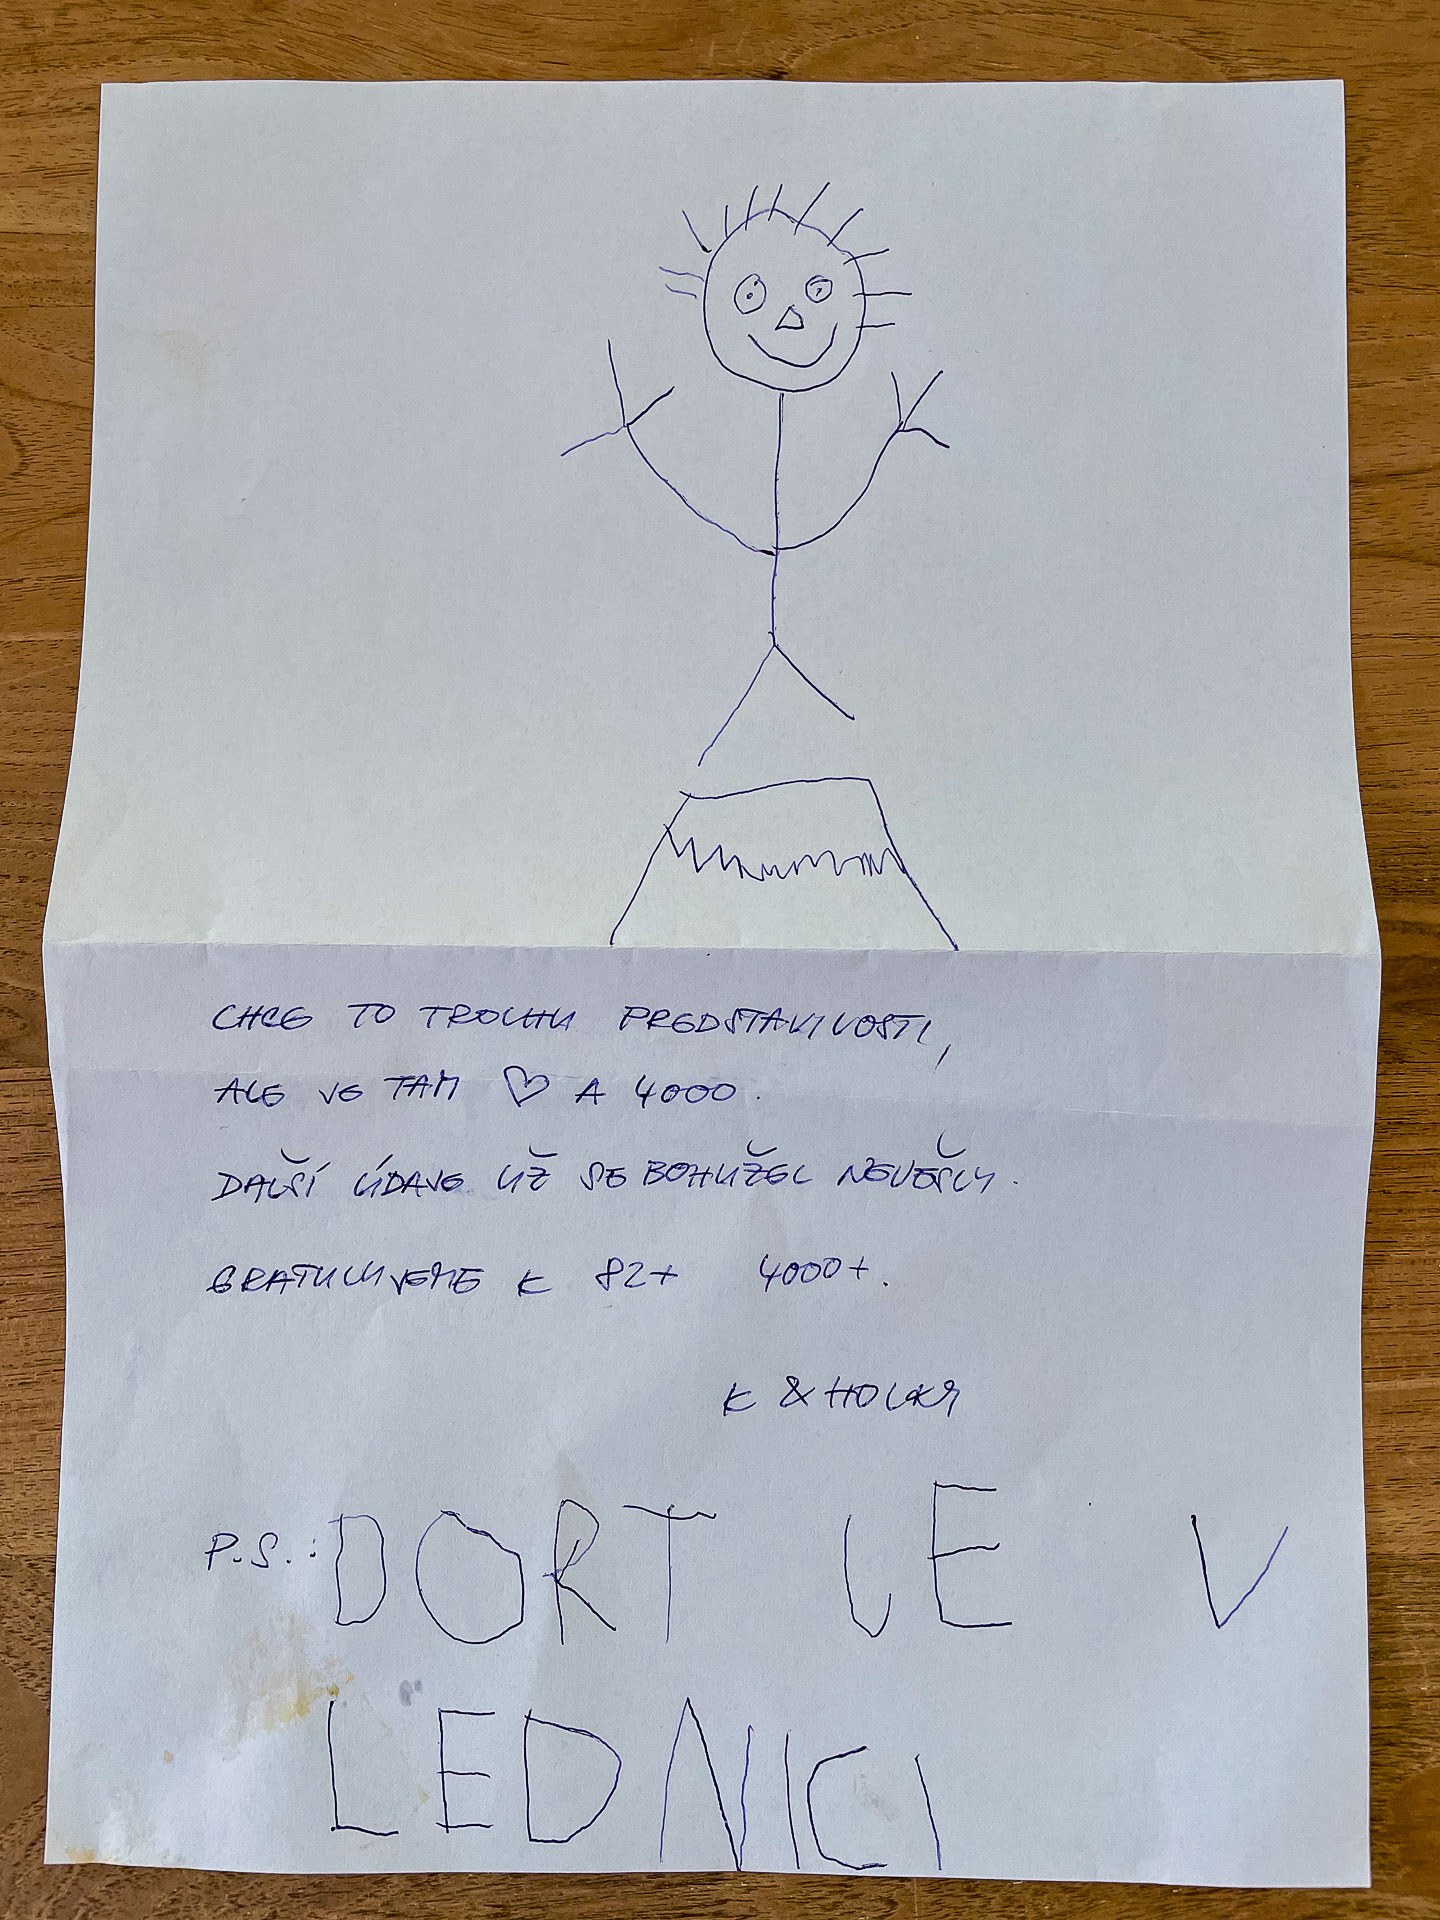 CHCE TO TROCHU PREDSTAVIVOSTI,
ALE JE TAM ♡ A 4000.
DALŠÍ ÚDAJE UŽ SE BOHUŽEL NEVEŠLY.
GRATULUJEME K 82+ 4000+.
K & HOLKY
P.S.: DORT JE V
LEDNICI